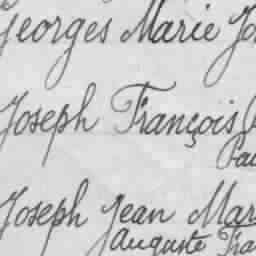 Georges Marie
Joseph François
Joseph Jean
Auguste